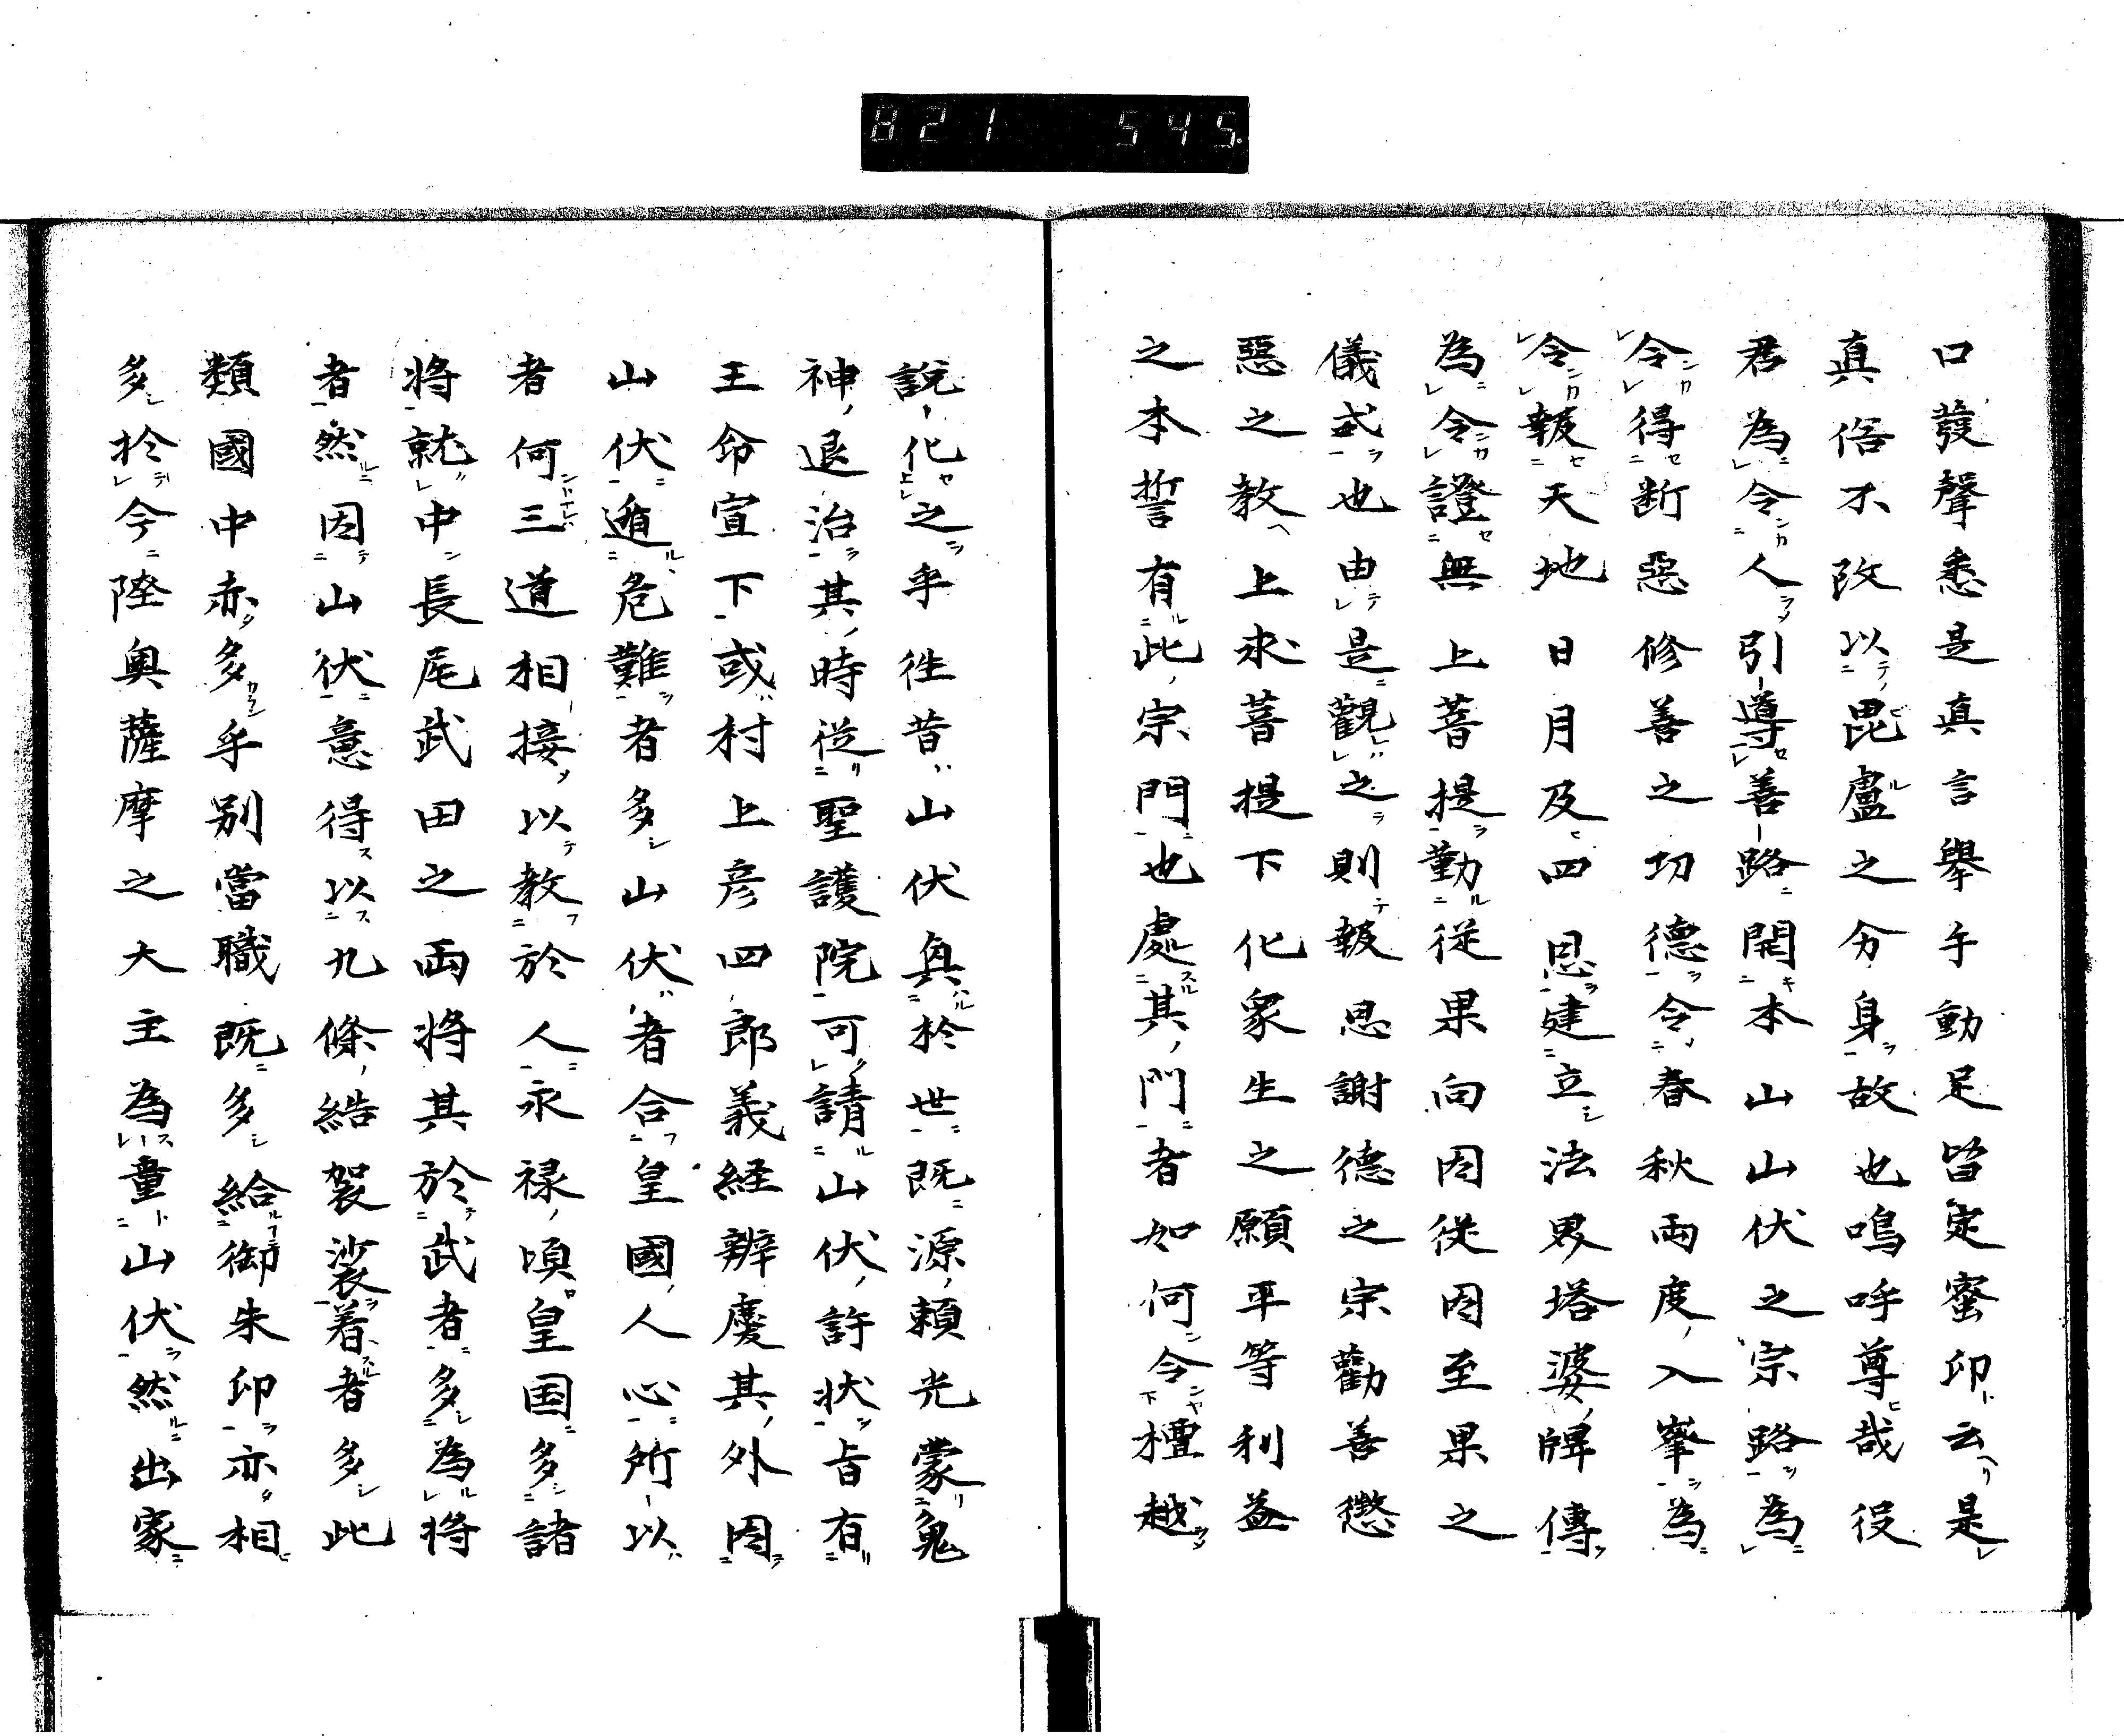 821 545.
口發聲悉是真言擧手動足皆定蜜印云是
真俗不改以毘盧之分身故也嗚呼尊哉役
君為令人引導善路開本山山伏之宗路為
令得断惡修善之功德令春秋兩度入峯為
令報天地日月及四恩建立法界塔婆牌傳
為令證無上菩提勤從果向因從因至果之
儀式也由是觀之則報恩謝德之宗勸善懲
惡之教上求菩提下化衆生之願平等利益
之本誓有此宗門也處其門者如何令檀越
說化之乎徃昔山伏具於世既源頼光蒙鬼
神退治其時從聖護院可請山伏許状旨有
王命宣下或村上彦四郎義経辨慶其外因
山伏遁危難者多山伏者合皇國人心所以
者何三道相接以教於人永禄頃皇国多諸
将就中長尾武田之両将其於武者多為将
者然因山伏意得以九條袈裟着者多此
類國中亦多乎别當職既多給御朱印亦相
多於今陸奥薩摩之大主為童山伏然出家